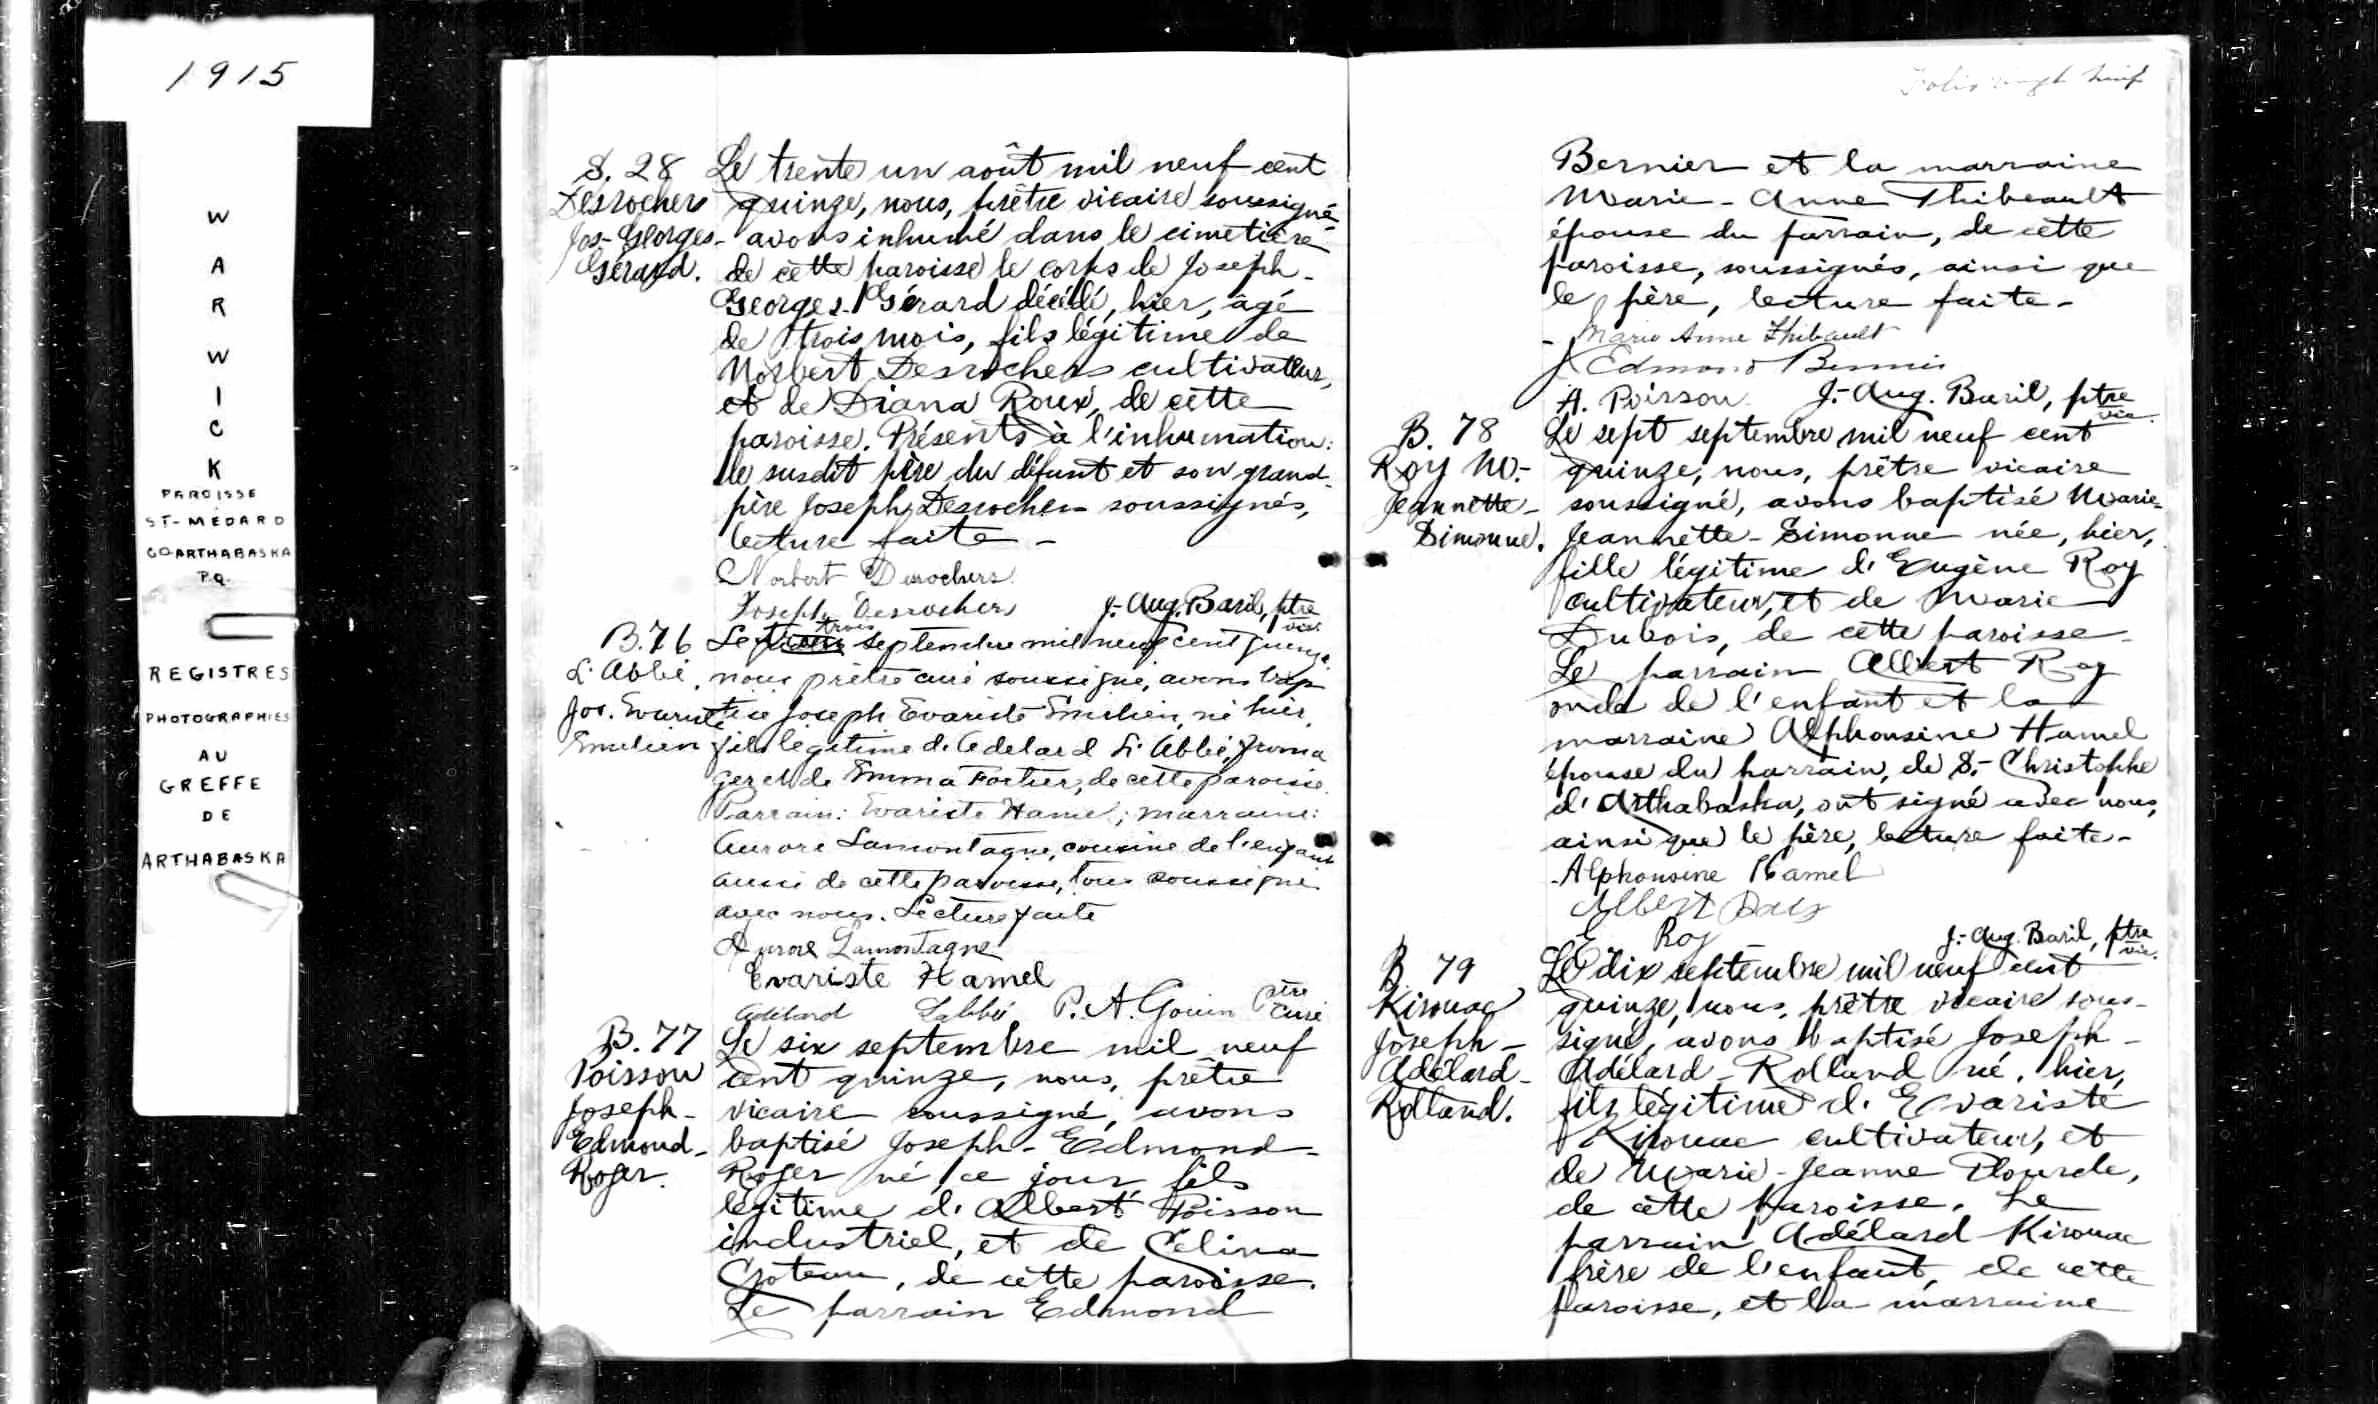 1915
WARWICK
PAROISSE
ST-MÉDARD
CO ARTHABASKA
P.Q.
REGISTRES
PHOTOGRAPHIES
AU
GREFFE
DE
ARTHABASKA
S. 28
Desrochers
Jos-Georges-
Gérard.
Le trente un août mil neuf cent
quinze, nous, prêtre vicaire soussigné
avons inhumé dans le cimetière
de cette paroisse le corps de Joseph-
Georges-Gérard décédé, hier, âgé
de trois mois, fils légitime de
Norbert Desrochers cultivateur,
et de Diana Roux, de cette
paroisse. Présents à l'inhumation:
le susdit père du défunt et son grand-
père Joseph Desrochers soussignés,
lecture faite -
Norbert Desrochers
Joseph Desrochers J.-Aug. Baril, ptre
vic.
B. 76
L'Abbé
Jos. Evariste
Emilien
trois
Le septembre mil neuf cent quinze
nous prêtre curé soussigné, avons bap
tisé Joseph Evariste Emilien, né hier,
fils légitime d'Adelard L'Abbé, froma
ger et de Emma Fortier, de cette paroisse.
Parrain: Evariste Hamel; marraine:
Aurore Lamontagne, cousine de l'enfant
aussi de cette paroisse, tous soussignés
avec nous. Lecture faite
Aurore Lamontagne
Evariste Hamel
Adélard Labbé P. A. Gouin Ptre
curé
B. 77
Poisson
Joseph-
Edmond-
Roger.
Le six septembre mil neuf
cent quinze, nous, prêtre
vicaire soussigné, avons
baptisé Joseph-Edmond-
Roger né, ce jour, fils
légitime d'Albert Poisson
industriel, et de Célina
Croteau, de cette paroisse.
Le parrain Edmond
Folio vingt neuf
Bernier et la marraine
Marie-Anne Thibeault
épouse du parrain, de cette
paroisse, soussignés, ainsi que
le père, lecture faite -
Marie Anne Thibault
J Edmond Bernier
A. Poisson J.-Aug. Baril, ptre
vic.
B. 78
Roy M.-
Jeannette-
Simonne.
Le sept septembre mil neuf cent
quinze, nous, prêtre vicaire
soussigné, avons baptisé Marie-
Jeannette-Simonne née, hier,
fille légitime d'Eugène Roy
cultivateur, et de Marie
Dubois, de cette paroisse.
Le parrain Albert Roy
oncle de l'enfant et la
marraine Alphonsine Hamel
épouse du parrain, de S.-Christophe
d'Arthabaska, ont signé avec nous,
ainsi que le père, lecture faite -
Alphonsine Hamel
Albert Roy
E Roy J.-Aug. Baril, ptre
vic.
B. 79
Kirouac
Joseph-
Adélard-
Rolland.
Le dix septembre mil neuf cent
quinze, nous, prêtre vicaire sous-
signé, avons baptisé Joseph-
Adélard-Rolland né, hier,
fils légitime d'Evariste
Kirouac cultivateur, et
de Marie-Jeanne Plourde,
de cette paroisse. Le
parrain Adélard Kirouac
frère de l'enfant, de cette
paroisse, et la marraine